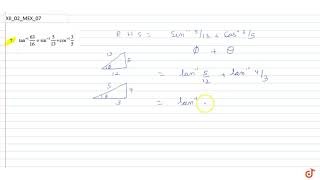 XII_02_MEX_07
7 tan⁻¹ 63/16 = sin⁻¹ 5/13 + cos⁻¹ 3/5
RHS = Sin⁻¹ 5/13 + Cos⁻¹ 3/5
ϕ + θ
13 5
12
= tan⁻¹ 5/12 + tan⁻¹ 4/3
5 4
3
= tan⁻¹